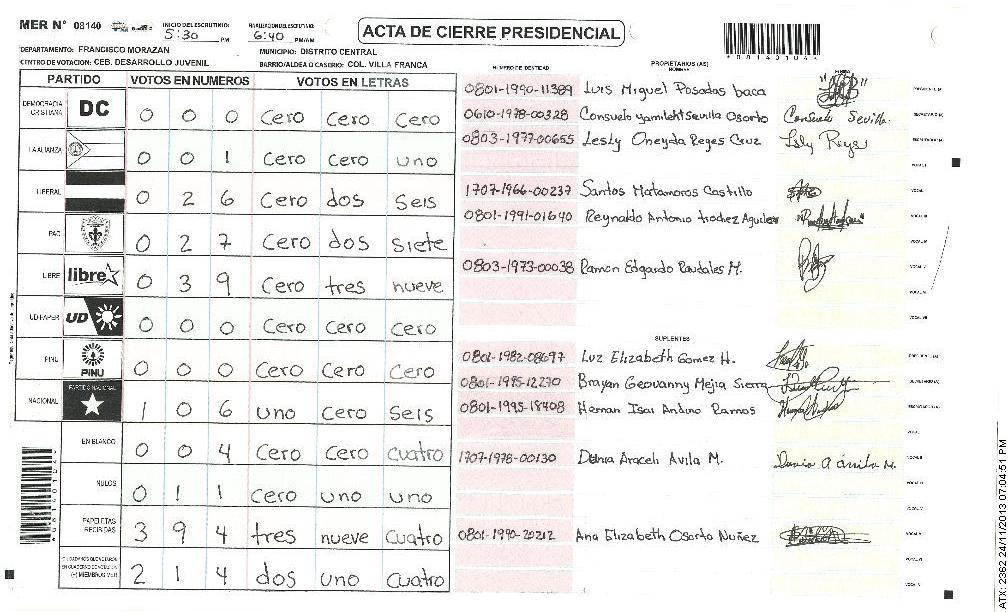 MER N° 08140
INICIO DEL ESCRUTINIO: 5:30 PM
FINALIZACION DEL ESCRUTINIO: 6:40 PM/AM
ACTA DE CIERRE PRESIDENCIAL
*08140104*
DEPARTAMENTO: FRANCISCO MORAZAN
MUNICIPIO: DISTRITO CENTRAL
CENTRO DE VOTACION: CEB. DESARROLLO JUVENIL
BARRIO/ALDEA O CASERIO: COL. VILLA FRANCA
PARTIDO VOTOS EN NUMEROS VOTOS EN LETRAS
DEMOCRACIA CRISTIANA DC 0 0 0 Cero Cero Cero
LA ALIANZA 0 0 1 Cero Cero uno
LIBERAL 0 2 6 Cero dos Seis
PAC 0 2 7 Cero dos Siete
LIBRE libre 0 3 9 Cero tres nueve
UD-FAPER UD 0 0 0 Cero Cero Cero
PINU PINU 0 0 0 Cero Cero Cero
NACIONAL PARTIDO NACIONAL 1 0 6 uno Cero Seis
EN BLANCO 0 0 4 Cero Cero Cuatro
NULOS 0 1 1 Cero uno uno
PAPELETAS RECIBIDAS 3 9 4 tres nueve Cuatro
(+) MIEMBROS MER 2 1 4 dos uno Cuatro
NUMERO DE IDENTIDAD PROPIETARIOS (AS) NOMBRE FIRMA
0801-1990-11389 Luis Miguel Posadas baca
0610-1978-00328 Consuelo yamileht Sevilla Osorto Consuelo Sevilla.
0803-1977-00655 Lesly Oneyda Reyes Cruz Lesly Reyes
1707-1966-00237 Santos Matamoros Castillo
0801-1991-01640 Reynaldo Antonio
0803-1973-00038 Ramon Edgardo Raudales M.
SUPLENTES
0801-1982-08697 Luz Elizabeth Gomez H.
0801-1995-12270 Brayan Geovanny Mejia Sierra
0801-1995-18408 Hernan Isai Andino Ramos
1707-1978-00130 Dunia Araceli Avila M.
0801-1990-20212 Ana Elizabeth Osorto Nuñez
ATX: 2362 24/11/2013 07:04:51 PM